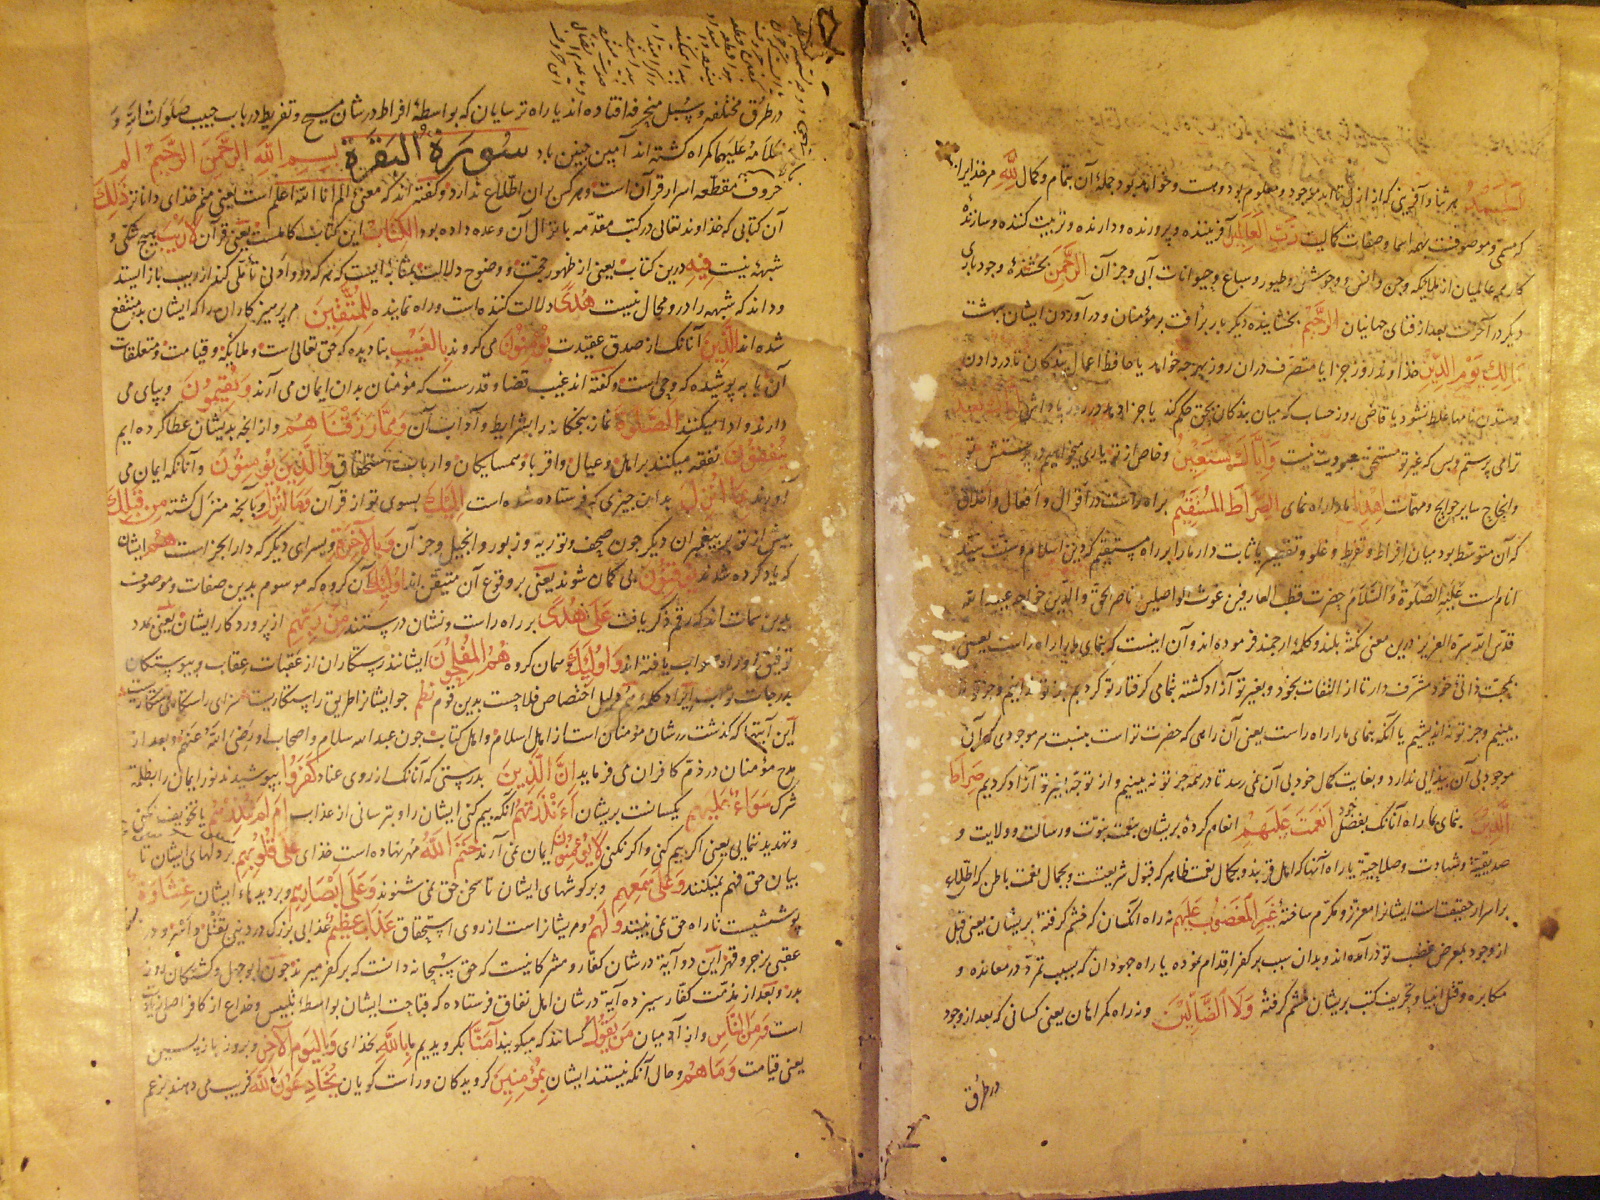 الحمد هر ثنا و آفرینی که از ازل تا ابد موجود و معلوم بود و هست و خواهد بود جملهٔ آن بتمام و کمال لله مر خدایراست
که مسمی و موصوفست بهمه اسما و صفات کمالیت رب العالمین آفریننده و پرورنده و دارنده و تربیت کننده و سازندهٔ
کار همه عالمیان از ملایکه و جن و انس و وحوش و طیور و سباع و حیوانات آبی و جز آن الرحمن بخشندهٔ وجود باری
دیگر در آخرت بعد از فنای جهانیان الرحیم بخشاینده دیگر بار برأفت بر مؤمنان و در آوردن ایشان بهشت
مالک یوم الدین خداوند روز جزا یا متصرف دران روز بهرچه خواهد یا حافظ اعمال بندگان تا در دادن
و ستدن نامها غلط نشود یا قاضی روز حساب که میان بندگان بحق حکم کند یا جزا دهنده در روز پاداش ایاک نعبد
ترا می پرستم و بس که غیر تو مستحق معبودیت نیست وایاک نستعین و خاص از تو یاری میخواهیم در پرستش تو
و انجاح سایر حوایج و مهمات اهدنا ما را راه نمای الصراط المستقیم براه راست در اقوال و افعال و اخلاق
که آن متوسط بود میان افراط و تفریط و غلو و تقصیر یا ثابت دار ما را بر راه مستقیم که دین اسلام و سنت سید
انام است علیه الصلوة والسلام حضرت قطب العارفین غوث الواصلین ناصر الحق والدین خواجه عبید الله
قدس الله سره العزیز درین معنی نکتهٔ بلند و کلمهٔ ارجمند فرموده اند و آن اینست که بنمای ما را راه راست یعنی
بمحبت ذاتی خود مشرف دار تا از التفات بخود و بغیر تو آزاد گشته بتمامی گرفتار تو گردیم جز تو ندانیم و جز تو نه
بینیم و جز تو نه اندیشیم یا آنکه بنمای ما را راه راست یعنی آن راهی که حضرت تراست بنسبت هر موجودی که آن
موجود بی آن پیدایی ندارد و بغایت کمال خود بی آن نمی رسد تا در همه جز تو نه بینیم و از توجه بغیر تو آزاد گردیم صراط
الذین بنمای بما راه آنانکه بفضل خود انعمت علیهم انعام کردهٔ بریشان بنعمت نبوت و رسالت و ولایت و
صدیقیت و شهادت و صلاحیت یا راه آنها که اهل قربند و بکمال نعمت ظاهر که قبول شریعتست و بجمال نعمت باطن که اطلاع
بر اسرار حقیقتست ایشانرا معزز و مکرم ساختهٔ غیر المغضوب علیهم نه راه آنکسان که خشم گرفتهٔ بریشان یعنی قبل
از وجود بمعرض غضب تو در آمده اند و بدان سبب بر کفر اقدام نموده یا راه جهودان که بسبب تمرد در معانده و
مکابره و قتل انبیا و تحریف کتب بریشان خشم گرفتهٔ ولا الضالین و نه راه گمراهان یعنی کسانی که بعد از وجود
در طرق
در طرق مختلفه و سبل منحرفه افتاده اند یا راه ترسایان که بواسطهٔ افراط در شان مسیح و تفریط در باب حبیب صلوات الله و
سلامه علیهما گمراه گشته اند آمین چنین باد سورة البقرة بسم الله الرحمن الرحیم الم
حروف مقطعه اسرار قرآن است و هر کس بران اطلاع ندارد و گفته اند که معنی الم انا الله اعلم است یعنی منم خدای داناتر ذلک
آن کتابی که خداوند تعالی در کتب مقدمه بانزال آن وعده داده بود الکتاب این کتاب کاملست یعنی قرآن لاریب هیچ شکی و
شبهه نیست فیه درین کتاب یعنی از ظهور حجت و وضوح دلالت بمثابه ایست که هر که درو ادنی تأملی کند از ریب باز ایستد
و داند که شبهه را درو مجال نیست هدی دلالت کننده است و راه نماینده للمتقین مر پرهیزگاران را که ایشان بدو منتفع
شده اند الذین آنانکه از صدق عقیدت یؤمنون می گروند بالغیب بنا دیده که حق تعالی است و ملایکه و قیامت و متعلقات
آن یا به پوشیده که وحی است و گفته اند غیب قضا و قدرست که مؤمنان بدان ایمان می آرند ویقیمون و بپای می
دارند و ادا میکنند الصلوة نماز پنجگانه را بشرایط و آداب آن ومما رزقناهم و از آنچه بدیشان عطا کرده ایم
ینفقون نفقه میکنند بر اهل و عیال و اقربا و همسایگان و ارباب استحقاق والذین یؤمنون و آنانکه ایمان می
آورند بما انزل بدان چیزی که فرستاده شده است الیک بسوی تو از قرآن وما انزل و بآنچه منزل گشته من قبلک
پیش از تو بر پیغمبران دیگر چون صحف و توریة و زبور و انجیل و جز آن وبالآخرة و بسرای دیگر که دار الجزاست هم ایشان
که یاد کرده شدند یوقنون بی گمان شوند یعنی بر وقوع آن متیقن اند اولئک آن گروه که موسوم بدین صفات و موصوف
بدین سمات اند که رقم ذکر یافت علی هدی بر راه راست و نشان درستند من ربهم از پروردگار ایشان یعنی بمدد
توفیق او راه صواب یافته اند واولئک و همان گروه هم المفلحون ایشانند رستگاران از عقبات عقاب و پیوستگان
بدرجات ثواب ایراد کلمهٔ هم دلیل اختصاص فلاحست بدین قوم نظم جو ایشانرا طریق راستکاریست سزای راستکاری رستکاریست
این آیتها که گذشت در شان مؤمنان است از اهل اسلام و اهل کتاب چون عبد الله سلام و اصحاب او رضی الله عنهم و بعد از
مدح مؤمنان در ذم کافران می فرماید ان الذین بدرستی که آنانکه از روی عناد کفروا بپوشیدند نور ایمان را بظلمت
شرک سواء علیهم یکسانست بریشان ءانذرتهم آنکه بیم کنی ایشان را و بترسانی از عذاب ام لم تنذرهم یا تخویف نکنی
و تهدید ننمایی یعنی اگر بیم کنی و اگر نکنی لایؤمنون ایمان نمی آرند ختم الله مهر نهاده است خدای علی قلوبهم بر دلهای ایشان تا
بیان حق فهم نمیکنند وعلی سمعهم و بر گوشهای ایشان تا سخن حق نمی شنوند وعلی ابصارهم و بر دیدهاء ایشان غشاوة
پوششیست تا راه حق نمی بینند ولهم و مریشانراست از روی استحقاق عذاب عظیم عذابی بزرگ در دنیی بقتل و اسر و در
عقبی بزجر و قهر این دو آیة در شان کفار و مشرکانیست که حق سبحانه دانست که بر کفر میرند چون ابوجهل و کشتگان روز
بدر و بعد از مذمت کفار سیزده آیة در شان اهل نفاق فرستاده که قباحت ایشان بواسطهٔ تلبیس و خداع از کافر اصلی زیادت
است ومن الناس و از آدمیان من یقول کسانند که میگویند آمنا بگرویدیم ما بالله بخدای وبالیوم الآخر و بروز باز پسین
یعنی قیامت وما هم و حال آنکه نیستند ایشان بمؤمنین گرویدگان و راست گویان یخادعون الله فریب می دهند بزعم